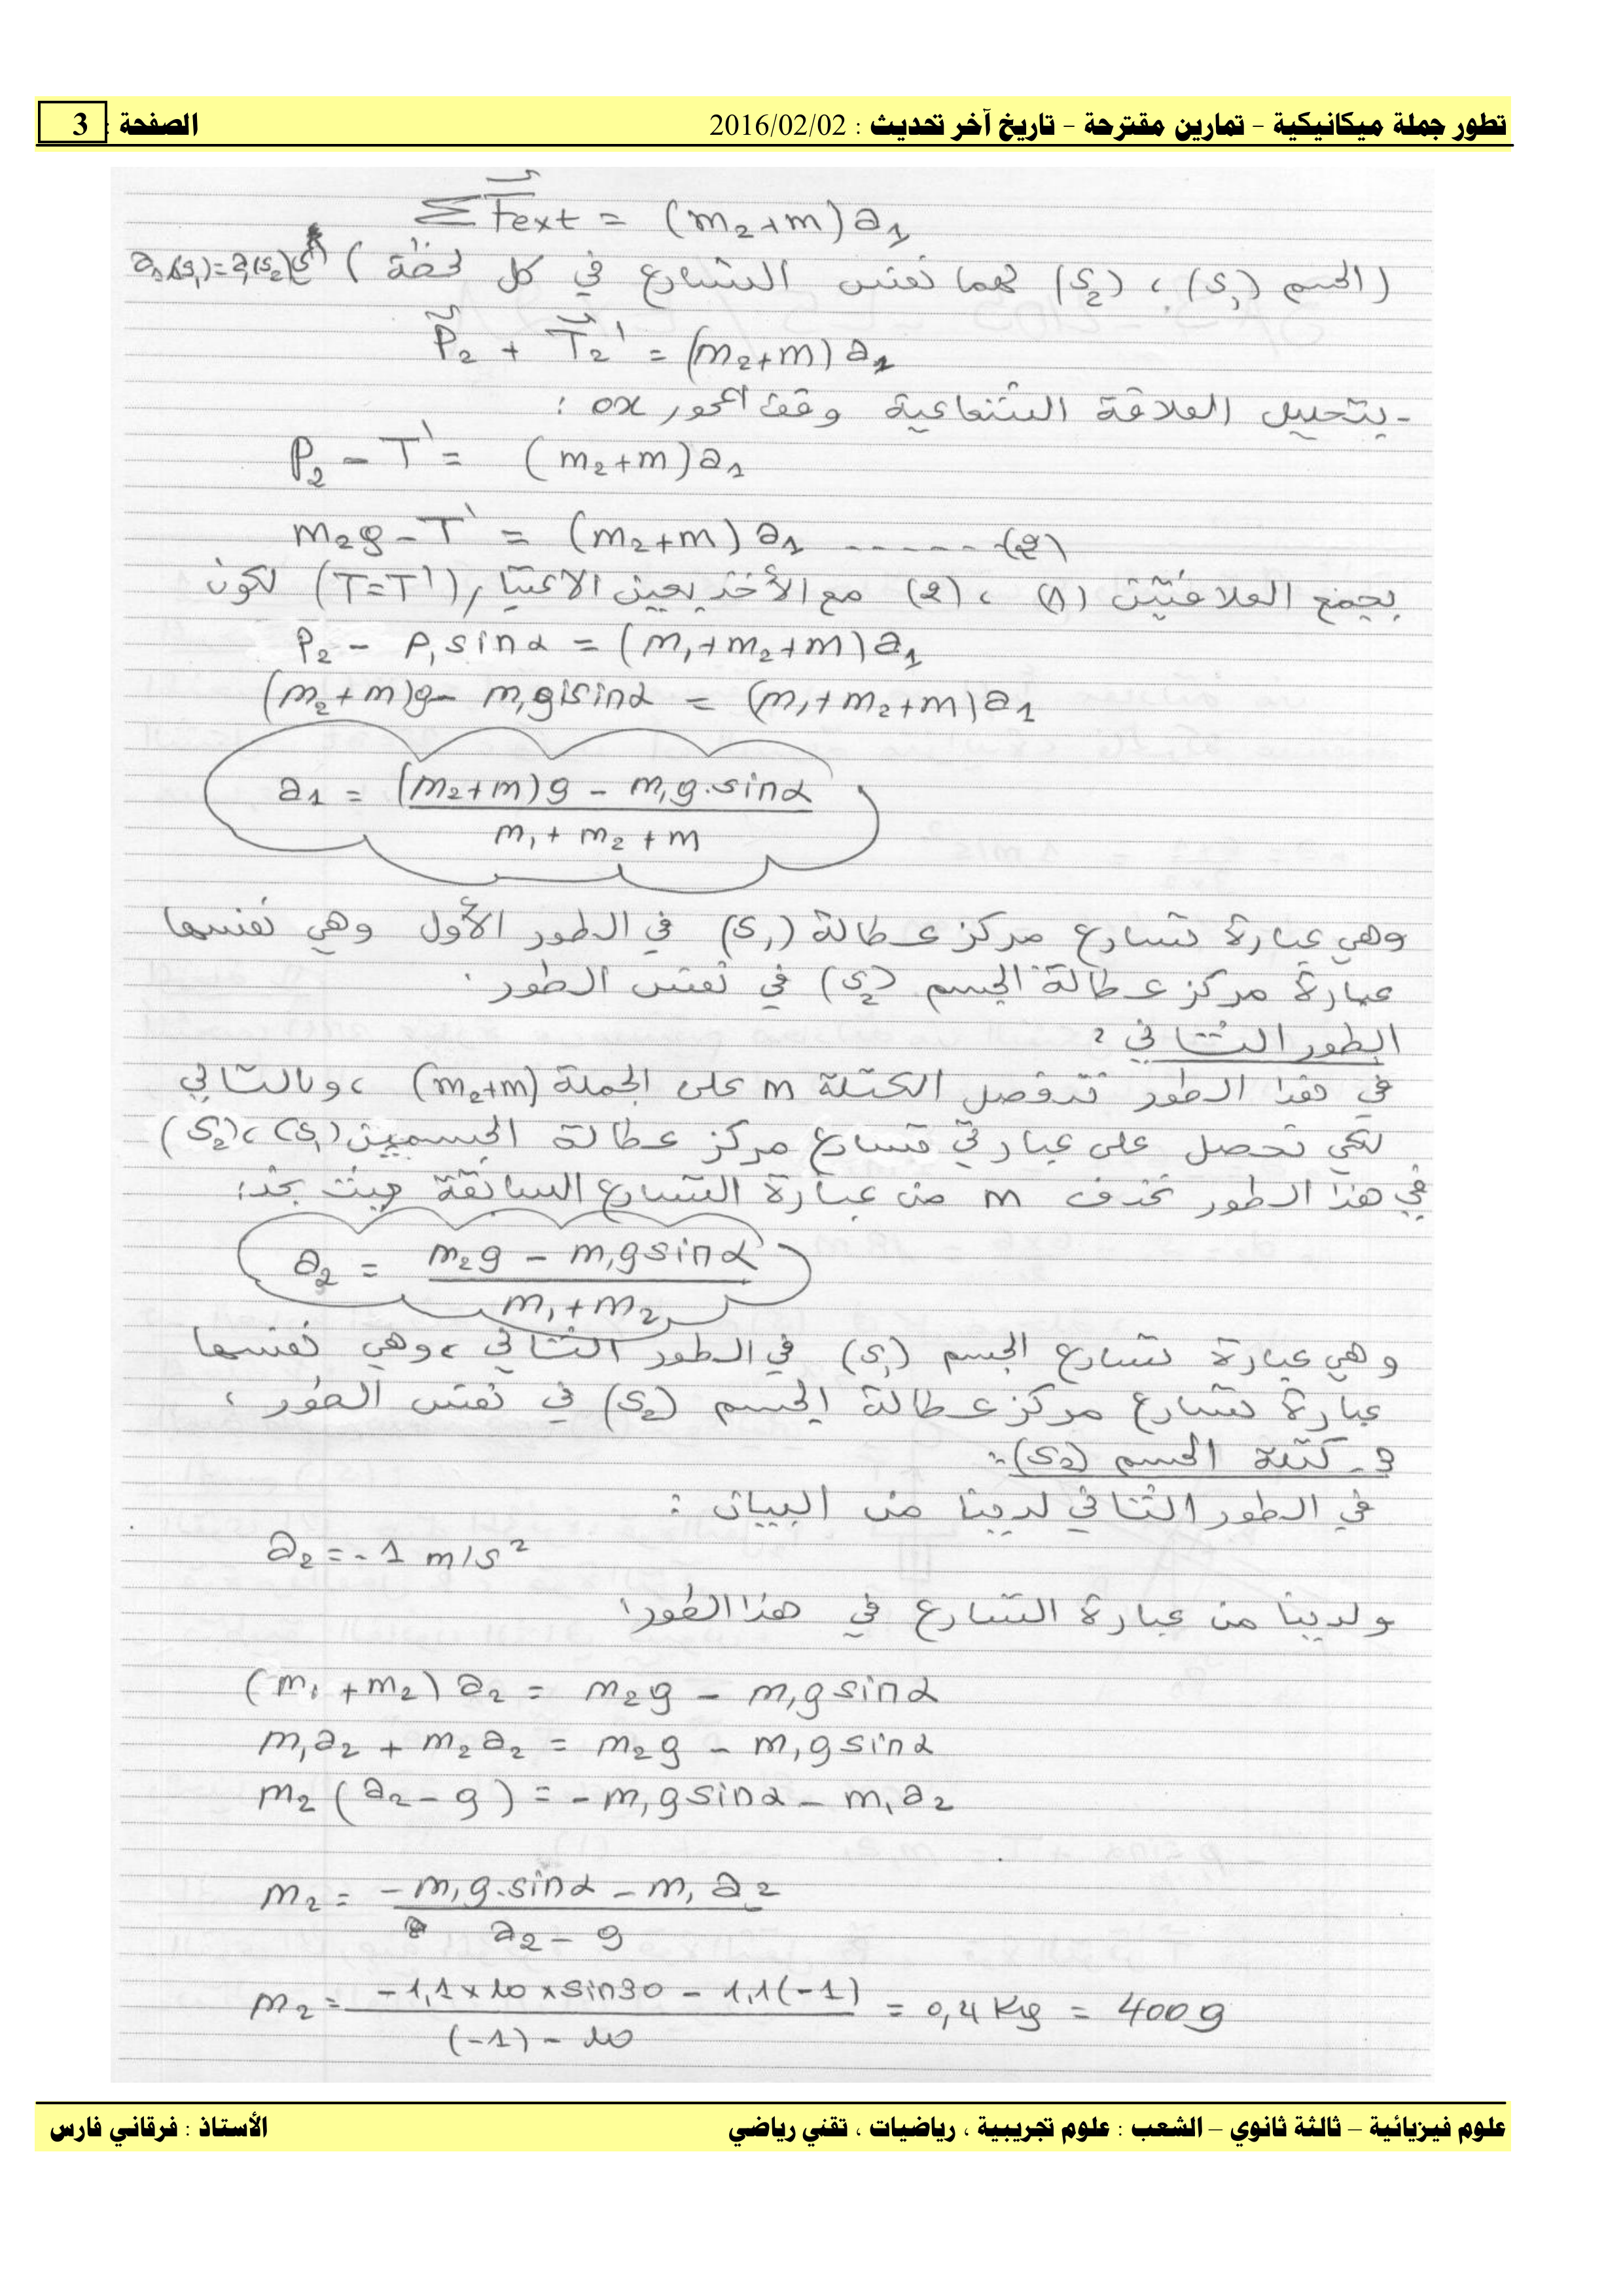 تطور جملة ميكانيكية - تمارين مقترحة - تاريخ آخر تحديث : 2016/02/02 الصفحة : 3
ΣFext = (m₂+m)a₁
(الجسم (S₁) ، (S₂) لهما نفس التسارع في كل لحظة)
P₂ + T₂' = (m₂+m)a₁
- بتحليل العلاقة الشعاعية وفق المحور ox :
P₂ - T' = (m₂+m)a₁
m₂g - T' = (m₂+m)a₁ ------(2)
بجمع العلاقتين (1) ، (2) مع الأخذ بعين الاعتبار (T=T') لكون
P₂ - P₁sinα = (m₁+m₂+m)a₁
(m₂+m)g - m₁g sinα = (m₁+m₂+m)a₁
a₁ = (m₂+m)g - m₁g.sinα
m₁ + m₂ + m
وهي عبارة تسارع مركز عطالة (S₁) في الطور الأول وهي نفسها
عبارة مركز عطالة الجسم (S₂) في نفس الطور .
الطور الثاني :
في هذا الطور الكتلة m على الجملة (m₂+m) ، وبالتالي
لكي نحصل على عبارتي تسارع مركز عطالة الجسمين (S₁) ، (S₂)
في هذا الطور نحذف m من عبارة التسارع السابقة حيث نجد :
a₂ = m₂g - m₁g sinα
m₁+m₂
وهي عبارة تسارع الجسم (S₁) في الطور الثاني ، وهي نفسها
عبارة تسارع مركز عطالة الجسم (S₂) في نفس الطور .
3- كتلة الجسم (S₂) :
في الطور الثاني لدينا من البيان :
a₂ = -1 m/s²
ولدينا من عبارة التسارع في هذا الطور :
(m₁+m₂)a₂ = m₂g - m₁g sinα
m₁a₂ + m₂a₂ = m₂g - m₁g sinα
m₂(a₂-g) = -m₁g sinα - m₁a₂
m₂ = -m₁g.sinα - m₁a₂
a₂ - g
m₂ = -1,1×10×sin30 - 1,1(-1) = 0,4 Kg = 400g
(-1) - 10
علوم فيزيائية – ثالثة ثانوي – الشعب : علوم تجريبية ، رياضيات ، تقني رياضي الأستاذ : فرقاني فارس